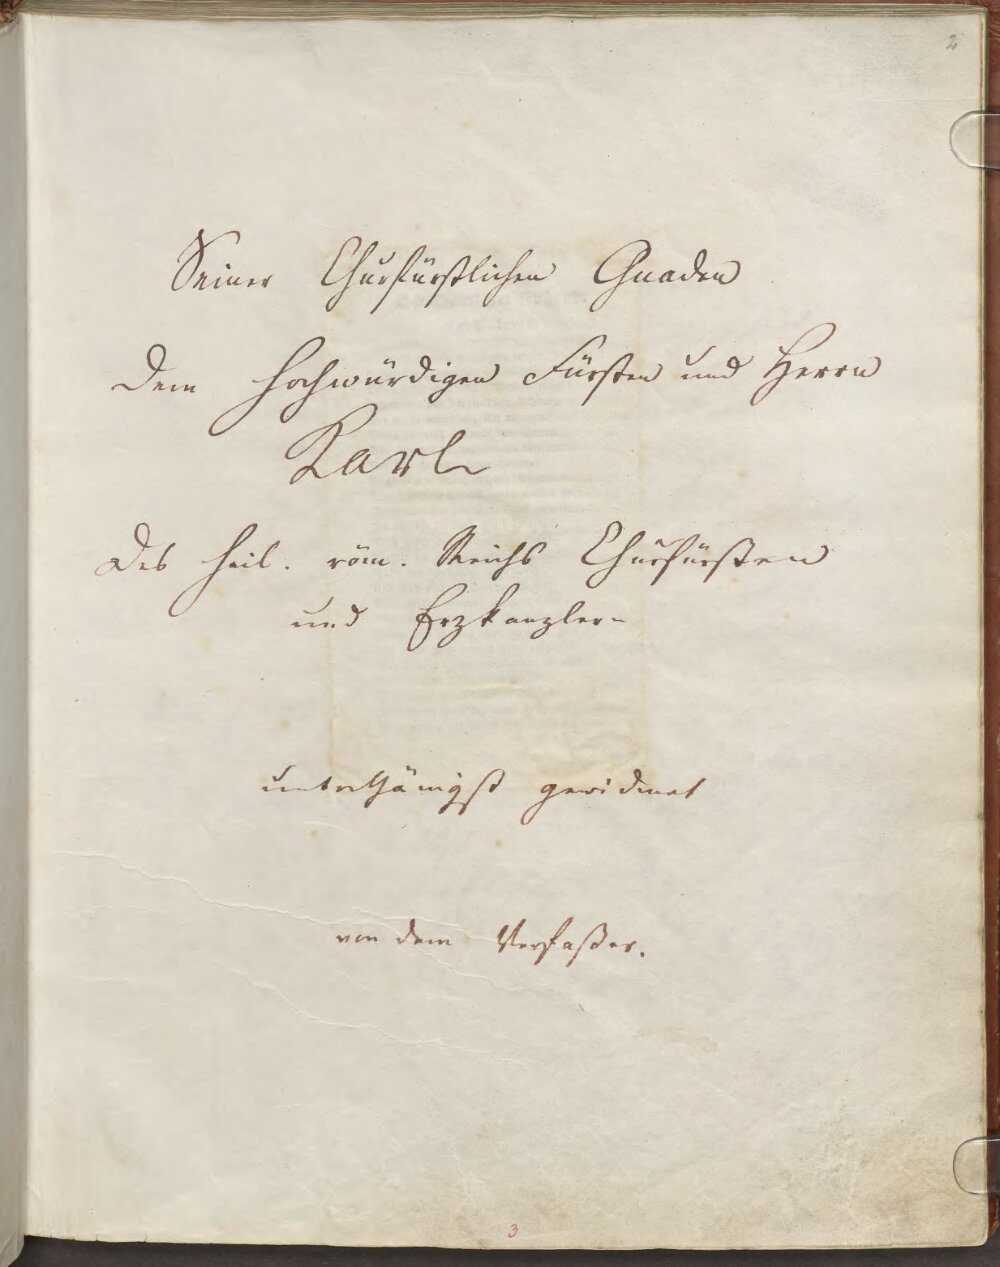 2
Seiner Churfürstlichen Gnaden
dem Hochwürdigen Fürsten und Herrn
Karl
des heil. röm. Reichs Churfürsten
und Erzkanzler
unterthänigst gewidmet
von dem Verfaßer.
3